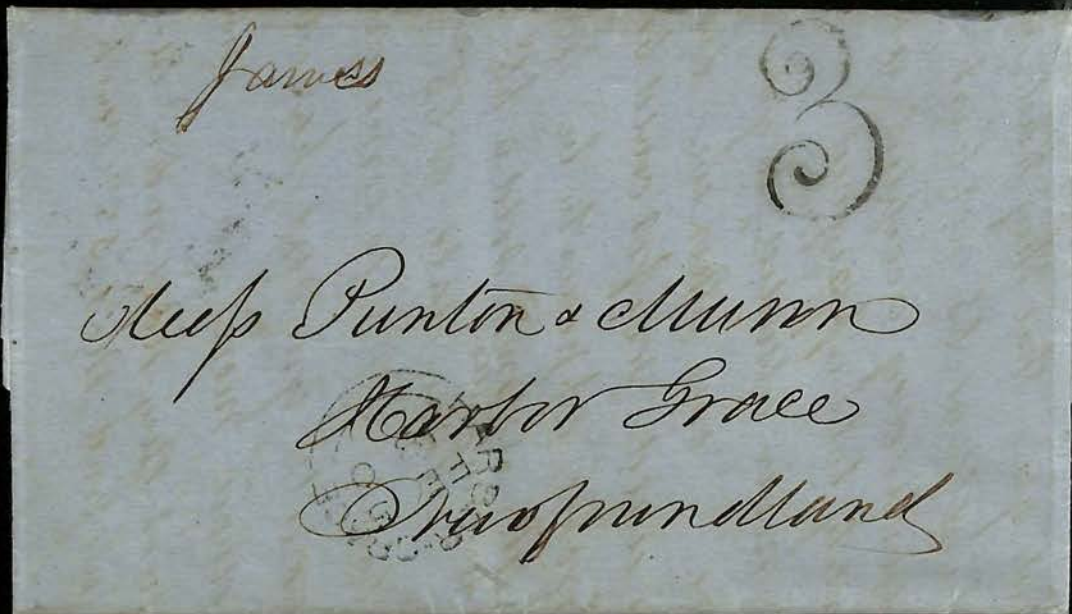 James
3
Mess Punton & Munn
Harbor Grace
Newfoundland